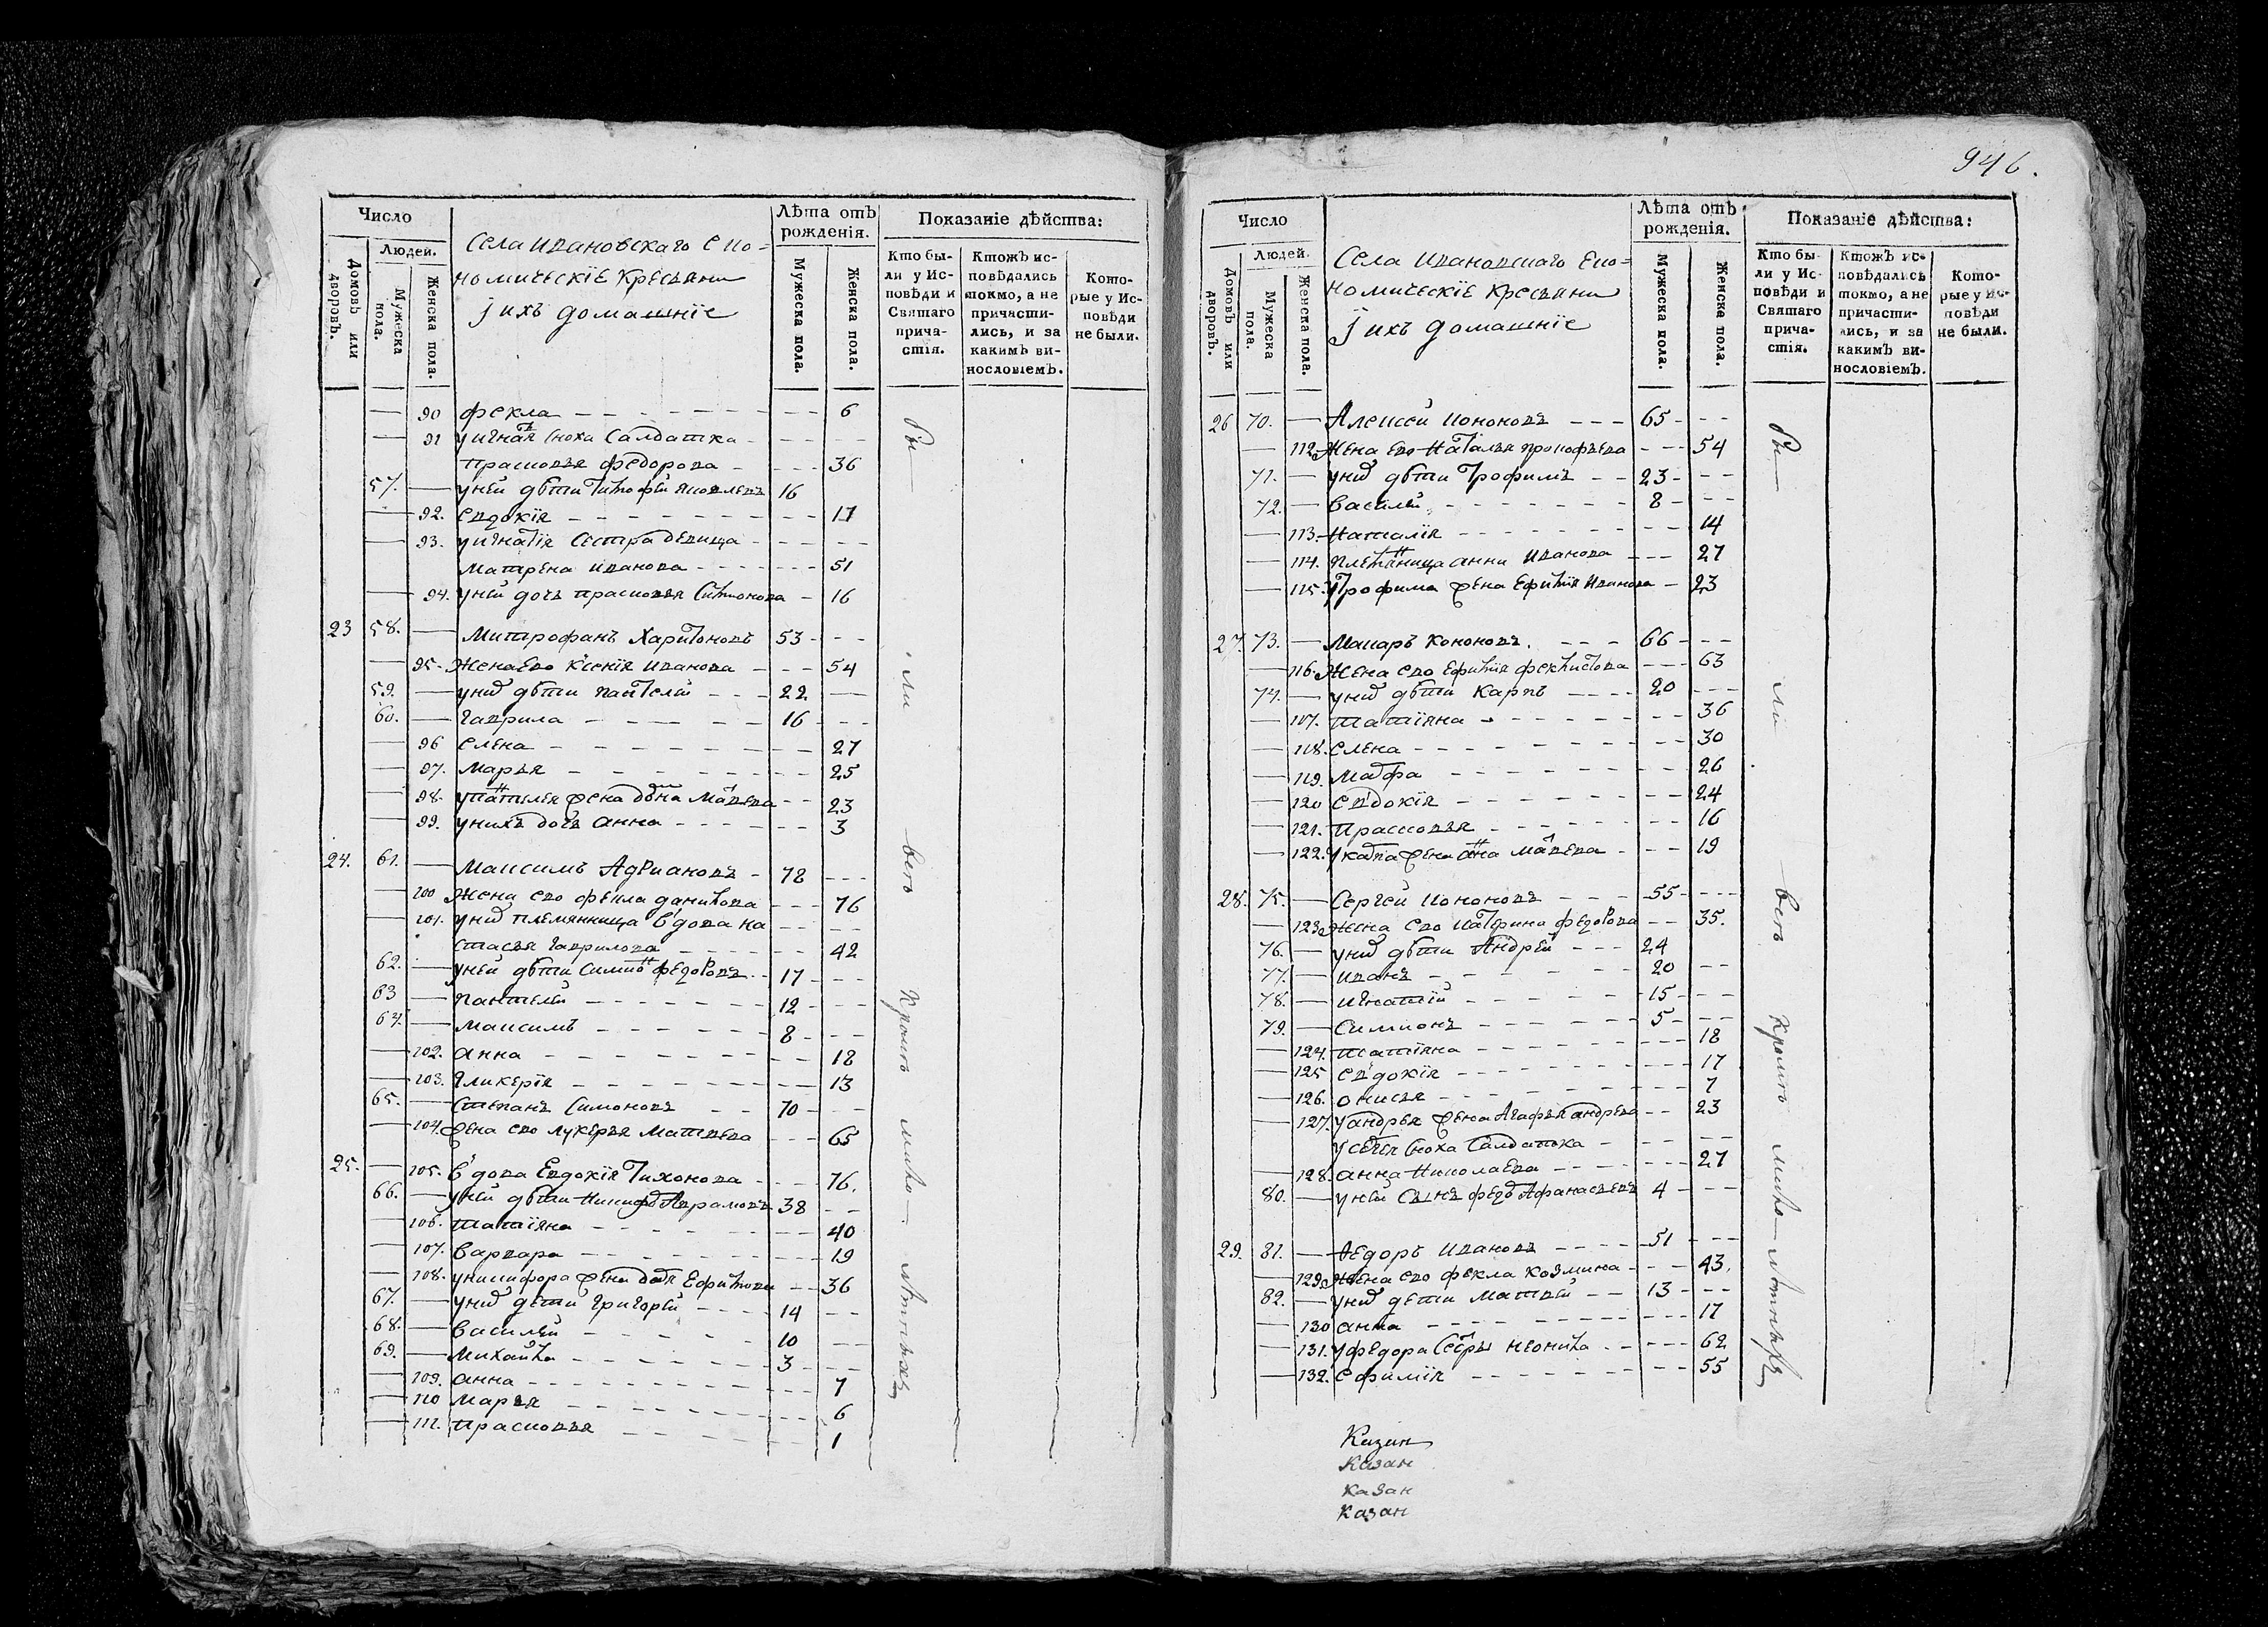 946.
Число
Людей.
Домовъ или дворовъ.
Мужеска пола.
Женска пола.
Села Ивановскаго Еко=
номическїе Крестьяни
јихъ домашнїе
Лѣта отъ рожденїя.
Мужеска пола.
Женска пола.
Показанїе дѣйства:
Кто были у Исповѣди и Святаго причастїя.
Ктожъ исповѣдались токмо, а не причастились, и за какимъ винословїемъ.
Которые у Исповѣди не были.
— 90 фекла 6
— 91 уигната сноха Салдатка
прасковья федорова 36
57. — уней дѣти тимофей яковлевъ 16
— 92. Евдокїя 11
— 93. уигнатїя сестра девица
матрена иванова 51
— 94. уней дочь прасковья Симионова 16
23 58. — Митрофанъ Харитоновъ 53
— 95. Жена Ево Ксенїя иванова 54
59. — унид дѣти пантелей 22
60. — гаврила 16
— 96 Елена 27
— 97. марья 25
— 98. упантелея жена домна матвева 23
— 99. унихъ дочь анна 3
24. 61. — Максимъ Адриановъ 78
— 100 Жена Ево фекла данилова 76
— 101. унид племянница вдова на
стасья гаврилова 42
62. — уней дѣти симионъ федоровъ 17
63 — пантелей 12
64. — максимъ 8
— 102. анна 18
— 103. гликерїя 13
65. — Степанъ Симоновъ 70
— 104. жена Ево лукерья матвева 65
25. — 105. вдова Евдокїя Тихонова 76.
66. — уней дѣти никифоръ Аврамовъ 38
— 106. татїяна 40
— 107. варвара 19
— 108. уникифора жена дарья Ефимова 36
67. — унид дети григорей 14
68. — василей 10
69. — михайла 3
— 109. анна 7
— 110 марья 6
— 111. прасковья 1
Бы
ли
всѣ
Кромѣ
мало
лѣтнѣхъ
Число
Людей.
Домовъ или дворовъ.
Мужеска пола.
Женска пола.
Села Ивановскаго Еко=
номическїе Крестьяни
јихъ домашнїе
Лѣта отъ рожденїя.
Мужеска пола.
Женска пола.
Показанїе дѣйства:
Кто были у Исповѣди и Святаго причастїя.
Ктожъ исповѣдались токмо, а не причастились, и за какимъ винословїемъ.
Которые у Исповѣди не были.
26 70. — Алексей Кононовъ 65
— 112. Жена Ево Наталья прокофьева 54
71. — унид дѣти Трофимъ 23
72. — василей 8
— 113. Наталїя 14
— 114. племяница анна Иванова 27
— 115. утрофима жена Ефимїя Иванова 23
27. 73. — Макаръ Кононовъ. 66
— 116. Жена Ево Ефимїя феклистова 63
74. — унид дѣти Карпъ 20
— 107. татїяна 36
— 118. Елена 30
— 119. марфа 26
— 120 Евдокїя 24
— 121. прасковья 16
— 122. укарпа жена анна матвева 19
28. 75. — Сергей Кононовъ 55
— 123. Жена Ево Катерина федорова 35.
76. — унид дѣти Андрей 24
77. — иванъ 20
78. — игнатїй 15
79. — Симионъ 5
— 124. татїяна 18
— 125 Евдокїя 17
— 126. онисья 7
— 127. уандрея жена Агафья андрева 23
усергея сноха Салдатка
— 128. анна Николаева 27
80. — уней Сынъ федоръ Афанасьевъ 4
29. 81. — Федоръ Ивановъ 51
— 129. Жена Ево фекла Козмина 43.
82. — унид дети матвей 13
— 130 анна 17
— 131. уфедора сестры неонила 62
— 132. Ефимїя 55
Бы
ли
всѣ
Кромѣ
мало
лѣтнѣхъ
Казан
Казан
Казан
Казан